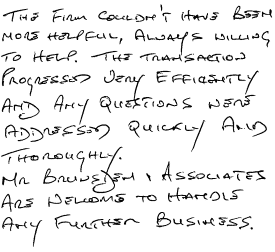 THE FIRM COULDN'T HAVE BEEN
MORE HELPFUL, ALWAYS WILLING
TO HELP. THE TRANSACTION
PROGRESSED VERY EFFICENTLY
AND ANY QUESTIONS WERE
ADDRESSED QUICKLY AND
THOROUGHLY.
MR BRUNSDEN & ASSOCIATES
ARE WELCOME TO HANDLE
ANY FURTHER BUSINESS.